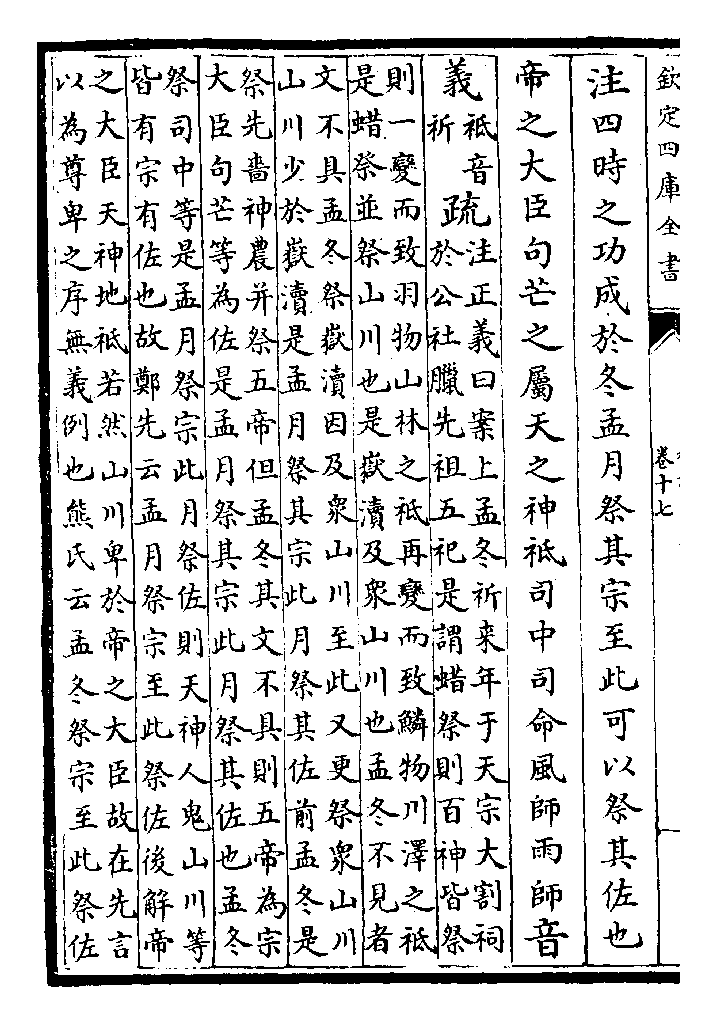 欽定四庫全書
卷十七
注四時之功成於冬孟月祭其宗至此可以祭其佐也
帝之大臣句芒之屬天之神祗司中司命風師雨師音
義祗音祈疏注正義曰案上孟冬祈来年于天宗大割祠
於公社臘先祖五祀是謂蜡祭則百神皆祭
則一變而致羽物山林之祗再變而致鱗物川澤之祗
是蜡祭並祭山川也是嶽瀆及衆山川也孟冬不見者
文不具孟冬祭嶽瀆因及衆山川至此又更祭衆山川
山川少於嶽瀆是孟月祭其宗此月祭其佐前孟冬是
祭先嗇神農并祭五帝但孟冬其文不具則五帝為宗
大臣句芒等為佐是孟月祭其宗此月祭其佐也孟冬
祭司中等是孟月祭宗此月祭佐則天神人鬼山川等
皆有宗有佐也故鄭先云孟月祭宗至此祭佐後解帝
之大臣天神地祗若然山川卑於帝之大臣故在先言
以為尊卑之序無義例也熊氏云孟冬祭宗至此祭佐